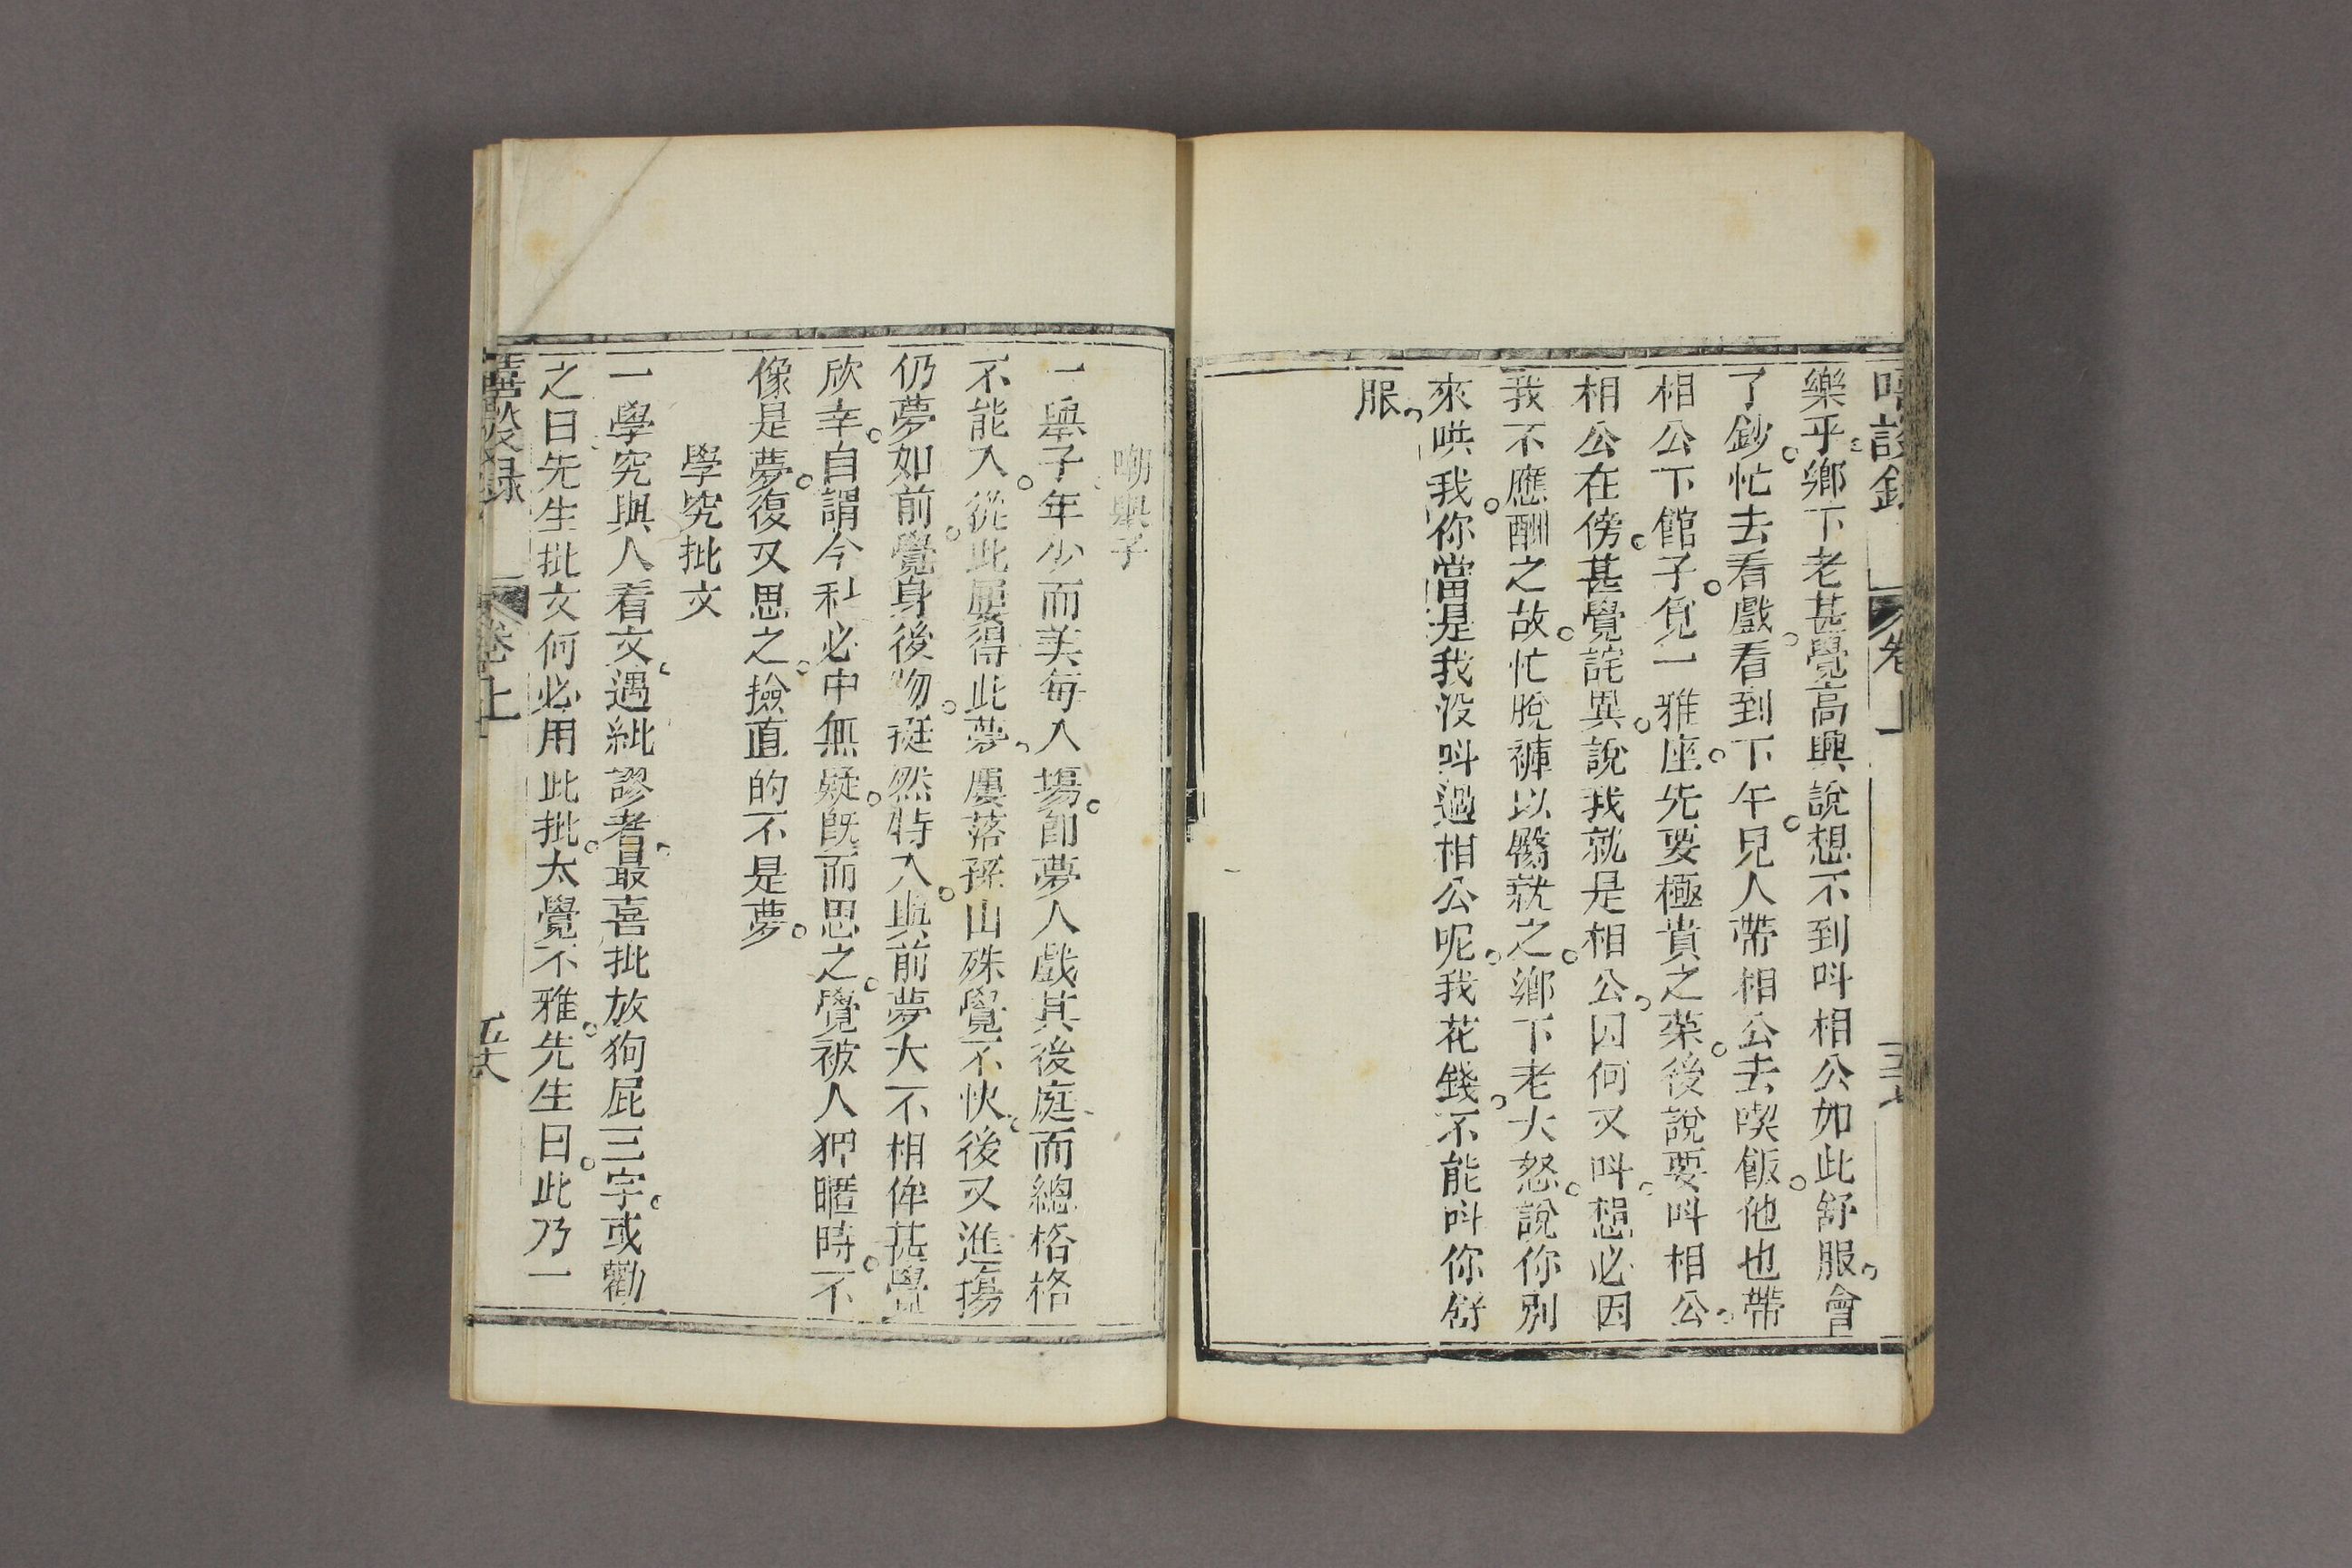 嘻談錄 卷上 五十七
樂乎鄉下老甚覺高興說想不到呌相公如此舒服會
了鈔忙去看戲看到下午見人帶相公去喫飯他也帶
相公下館子覓一雅座先要極貴之菜後說要呌相公
相公在傍甚覺詫異說我就是相公因何又呌想必因
我不應酬之故忙脫褲以臀就之鄉下老大怒說你別
來哄我你當是我沒呌過相公呢我花錢不能呌你舒
服
嘲舉子
一舉子年少而美每入塲卽夢人戲其後庭而總格格
不能入從此屢得此夢屢落孫山殊覺不快後又進塲
仍夢如前覺身後物挺然特入與前夢大不相侔甚覺
欣幸自謂今科必中無疑旣而思之覺被人狎暱時不
像是夢復又思之撿直的不是夢
學究批文
一學究與人看文遇紕謬者最喜批放狗屁三字或勸
之曰先生批文何必用此批太覺不雅先生曰此乃一
嘻談録 卷上 五十八